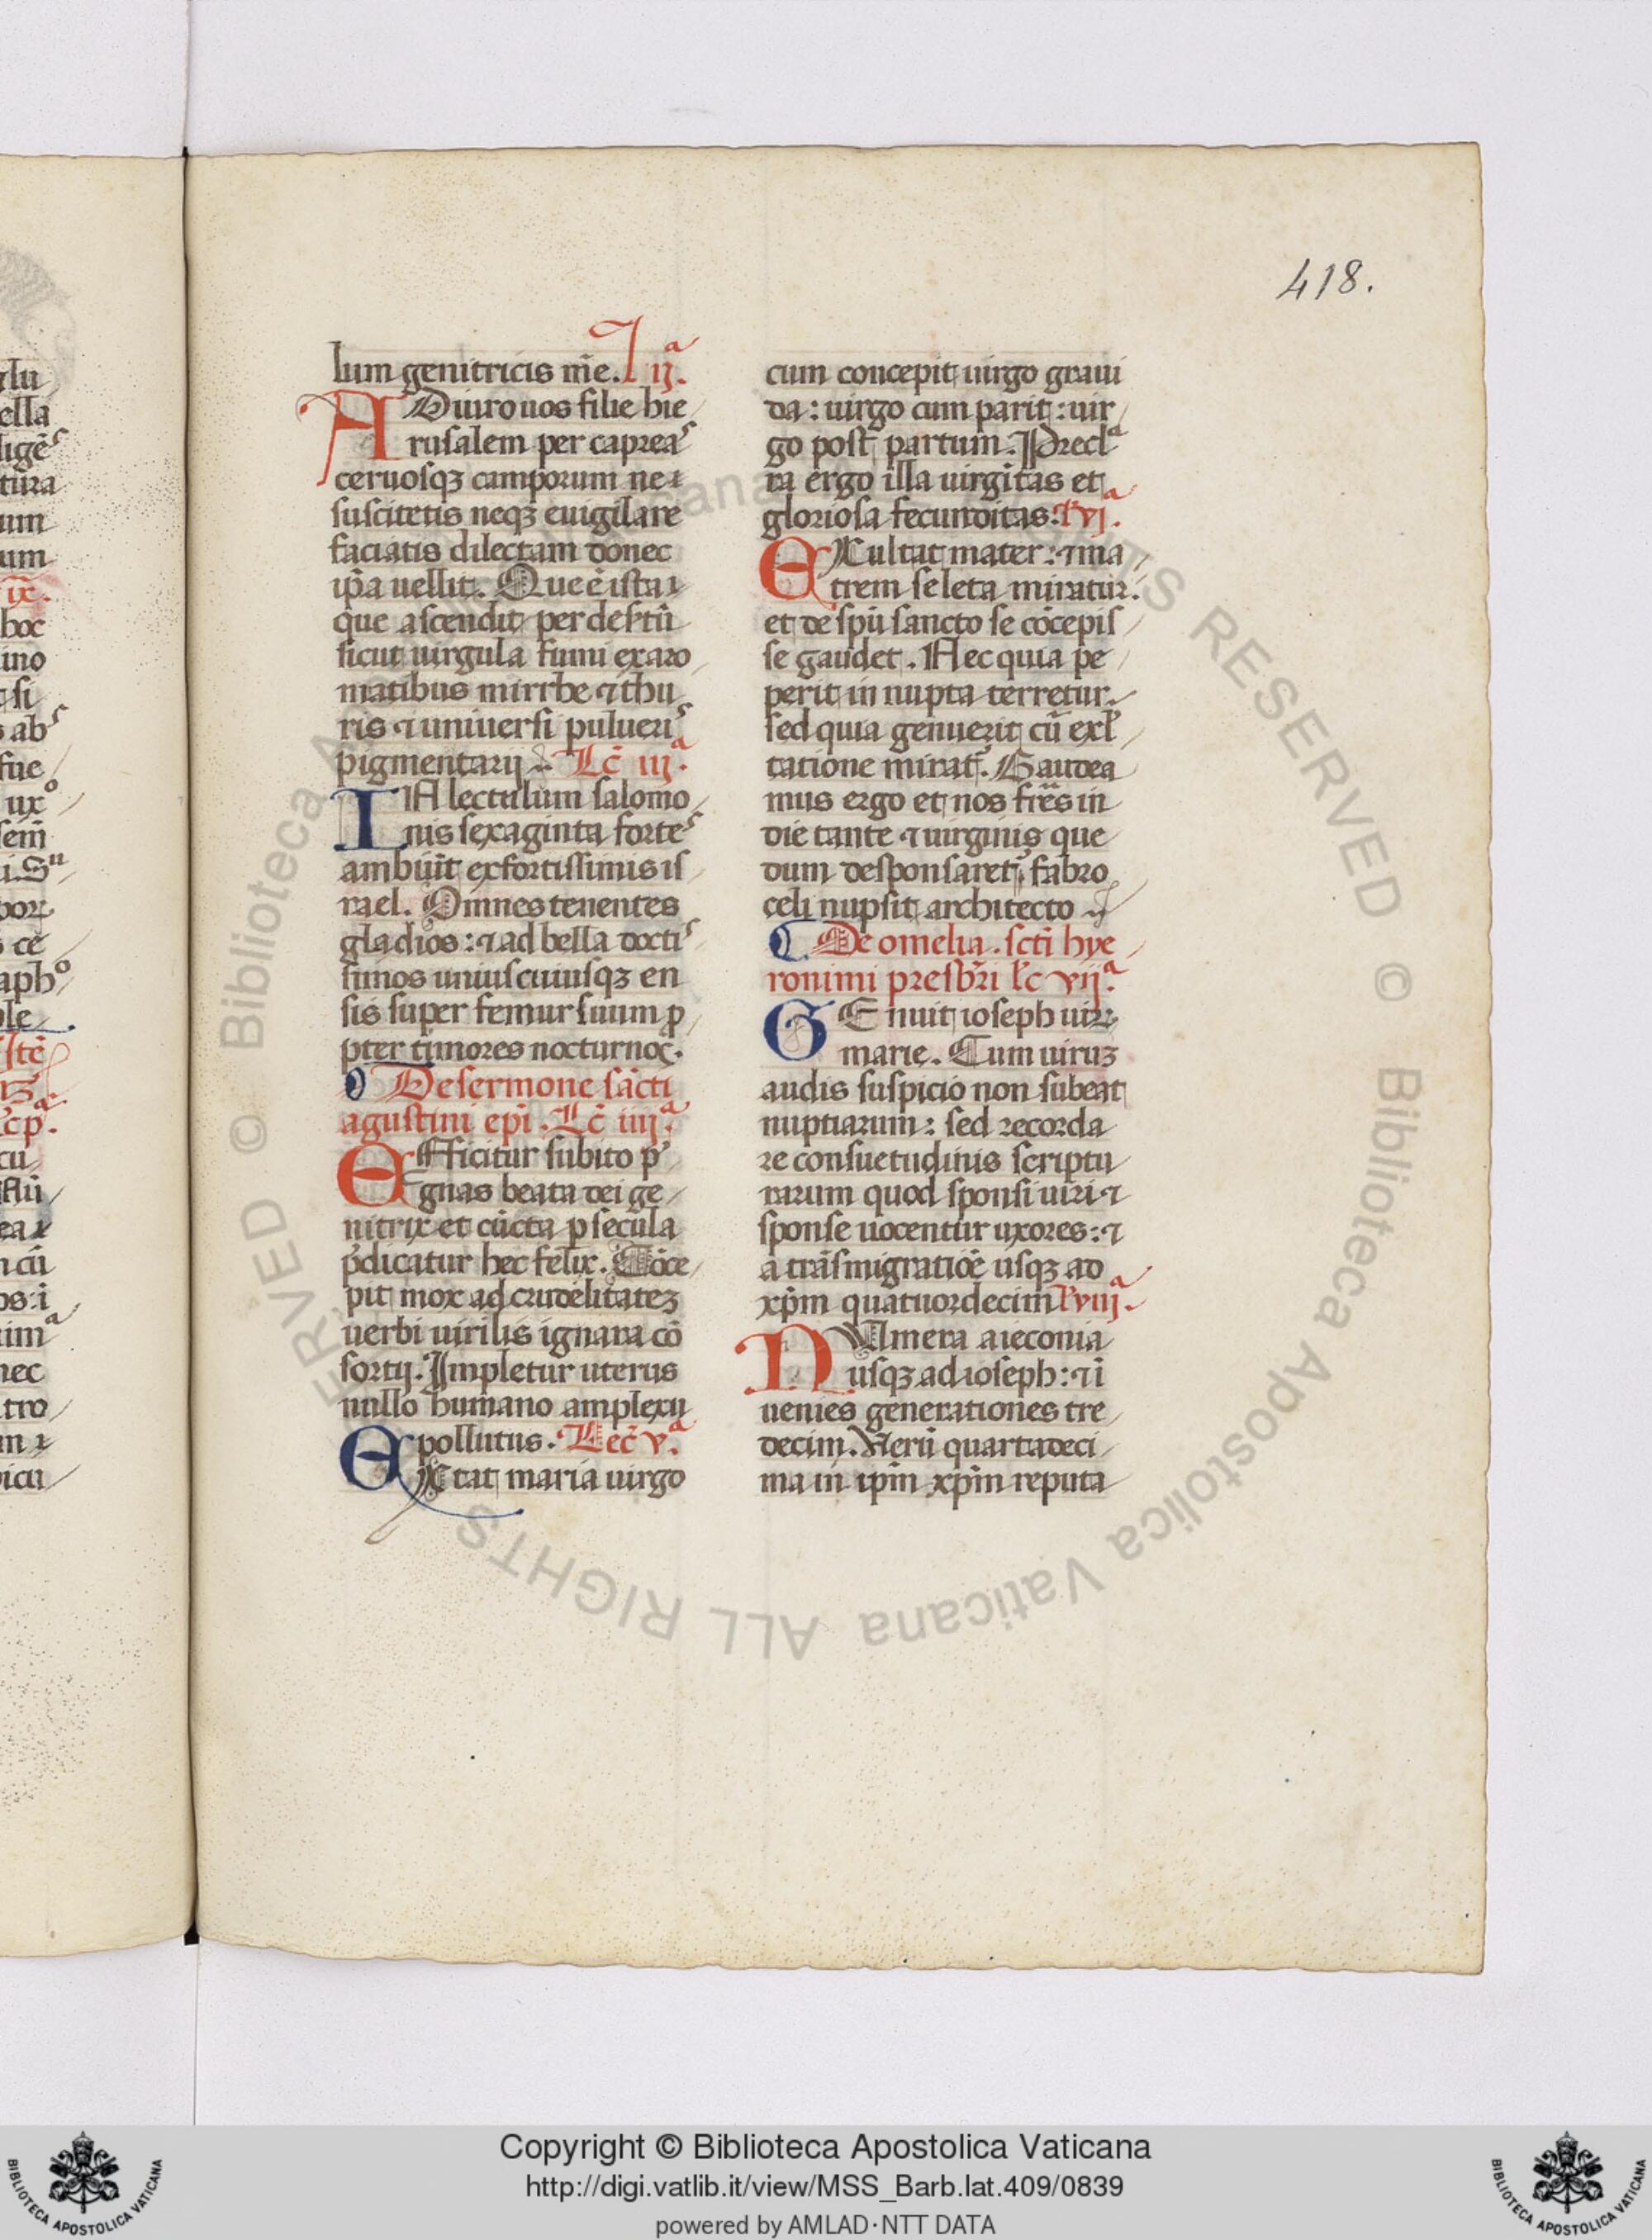 418.
lum genitricis m̄e. l. ij.ª
ADiuro uos filie hie
rusalem per capreas
ceruosqꝫ camporum ne
suscitetis neqꝫ euigilare
faciatis dilectam donec
ip̄a uellit. Que ē ista
que ascendit per desertū
sicut uirgula fumi ex aro
matibus mirrhe ⁊ thu
ris ⁊ uniuersi pulueris
pigmentarij. Lc̄ iij.ª
IN lectulum salomo
nis sexaginta fortes
ambiūt ex fortissimis is
rael. Omnes tenentes
gladios: ⁊ ad bella doctis
simos uniuscuiusqꝫ en
sis super femur suum ꝓ
pter timores nocturnos.
De sermone sācti
agustini ep̄i. Lc̄ iiij.ª
EFficitur subito p̄
gnas beata dei ge
nitrix et cūcta ꝑ secula
p̄dicatur hec felix. Cōce
pit mox ad crudelitateꝫ
uerbi uirilis ignara cō
sortij. Impletur uterus
nullo humano amplexu
pollutus. Lec̄ v.ª
EXtat maria uirgo
cum concepit uirgo graui
da: uirgo cum parit: uir
go post partum. Precla
ra ergo illa uirgitas et
gloriosa fecunditas. l vj.ª
EXultat mater: ⁊ ma
trem se leta miratur.
et de spū sancto se cōcepis
se gaudet. Nec quia pe
perit in nupta terretur.
sed quia genuerit cū exl
tatione mirat̄. Gaudea
mus ergo et nos fr̄es in
die tante ⁊ uirginis que
dum desponsaret̄ fabro
celi nupsit architecto
De omelia. scti hye
ronimi presbr̄i lc̄ vij.ª
GEnuit ioseph uiꝝ
marie. Cum uiruꝫ
audis suspicio non subeat
nuptiarum: sed recorda
re consuetudinis scriptu
rarum quod sponsi uiri ⁊
sponse uocentur uxores: ⁊
a trāsmigratiōe usqꝫ ad
xp̄m quatuordecim l viij.ª
NUmera a ieconia
usqꝫ ad ioseph: ⁊ ī
uenies generationes tre
decim. Nerū quartadeci
ma in ip̄m xp̄m reputa
© Biblioteca Apostolica Vaticana ALL RIGHTS RESERVED
Copyright © Biblioteca Apostolica Vaticana
http://digi.vatlib.it/view/MSS_Barb.lat.409/0839
powered by AMLAD·NTT DATA
BIBLIOTECA APOSTOLICA VATICANA
BIBLIOTECA APOSTOLICA VATICANA